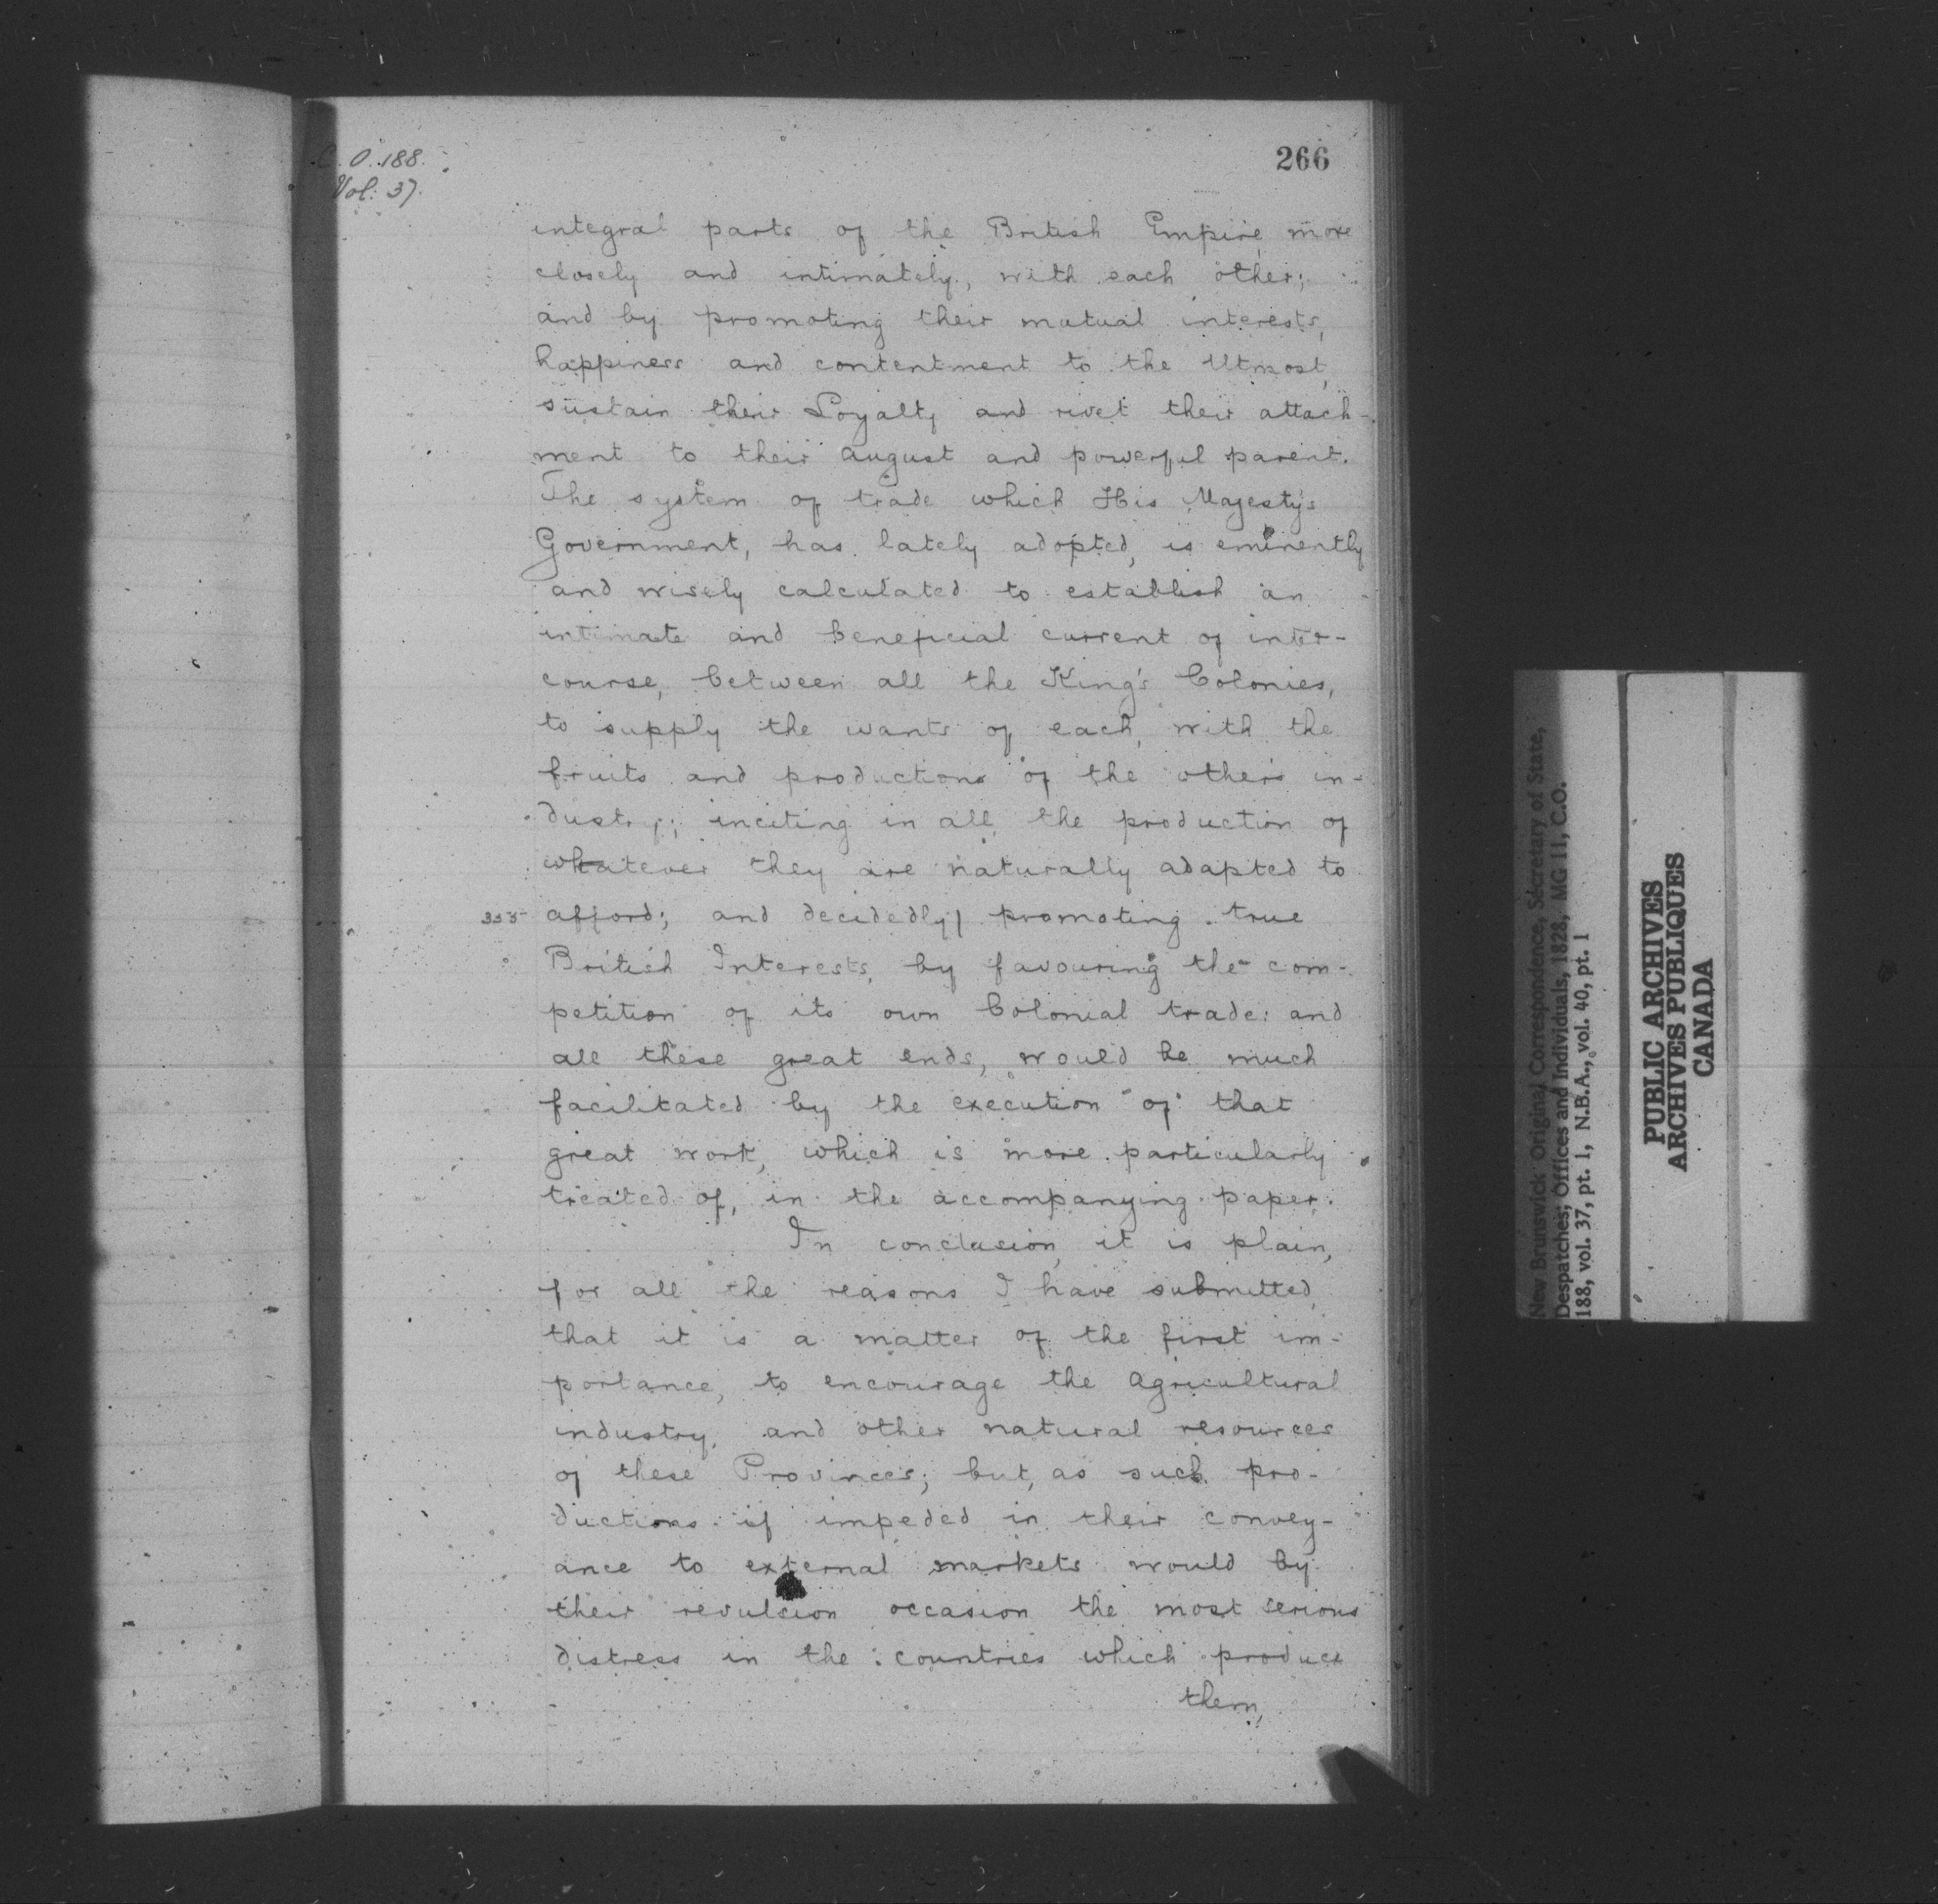 C.O. 188.
Vol: 37.
266
integral parts of the British Empire more
closely and intimately, with each other;
and by promoting their mutual interests,
happiness and contentment to the Utmost,
sustain their Loyalty and rivet their attach-
ment to their august and powerful parent.
The system of trade which His Majesty's
Government, has lately adopted, is eminently
and wisely calculated to establish an
intimate and beneficial current of inter-
course, between all the King's Colonies,
to supply the wants of each, with the
fruits and productions of the others in-
dustry; inciting in all, the production of
whatever they are naturally adapted to
355 afford; and decidedly promoting true
British Interests, by favouring the com-
petition of its own Colonial trade: and
all these great ends, would be much
facilitated by the execution of that
great work, which is more particularly
treated of, in the accompanying paper.
In conclusion, it is plain,
for all the reasons I have submitted,
that it is a matter of the first im-
portance, to encourage the Agricultural
industry, and other natural resources
of these Provinces; but, as such pro-
ductions if impeded in their convey-
ance to external markets would by
their revulsion occasion the most serious
distress in the countries which produce
them,
New Brunswick Original Correspondence, Secretary of State,
Despatches; Offices and Individuals, 1828, MG 11, C.O.
188, vol. 37, pt. 1, N.B.A., vol. 40, pt. 1
PUBLIC ARCHIVES
ARCHIVES PUBLIQUES
CANADA